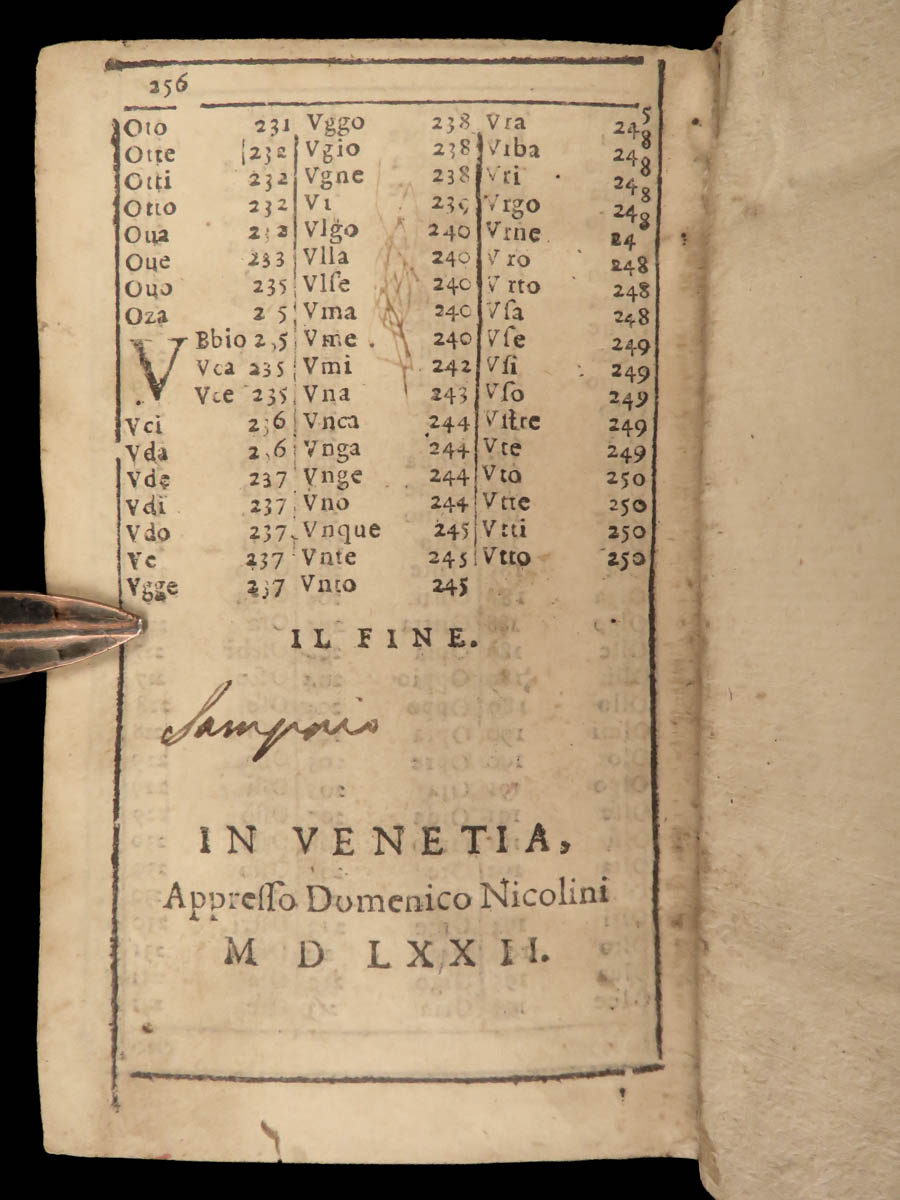 256
Oto 231 Vggo 238 Vra 245
Otte 232 Vgio 238 Vrba 248
Otti 232 Vgne 238 Vri 248
Otto 232 Vi 239 Vrgo 248
Oua 232 Vlgo 240 Vrne 248
Oue 233 Vlla 240 Vro 248
Ouo 235 Vlſe 240 Vrto 248
Oza 2 5 Vma 240 Vſa 248
VBbio 2,5 Vme 240 Vſe 249
Vca 235 Vmi 242 Vſi 249
Vce 235 Vna 243 Vſo 249
Vci 236 Vnca 244 Vſtre 249
Vda 2,6 Vnga 244 Vte 249
Vde 237 Vnge 244 Vto 250
Vdi 237 Vno 244 Vtte 250
Vdo 237 Vnque 245 Vtti 250
Ve 237 Vnte 245 Vtto 250
Vgge 237 Vnto 245
IL FINE.
Sampaio
IN VENETIA,
Appreſſo Domenico Nicolini
M D LXXII.